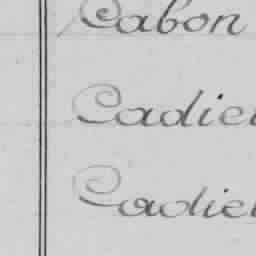 Cabon
Cadie
Cadie